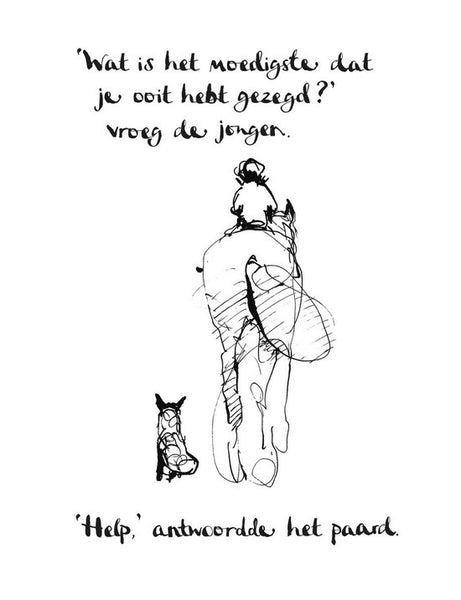 'Wat is het moedigste dat
je ooit hebt gezegd?'
vroeg de jongen.
'Help,' antwoordde het paard.